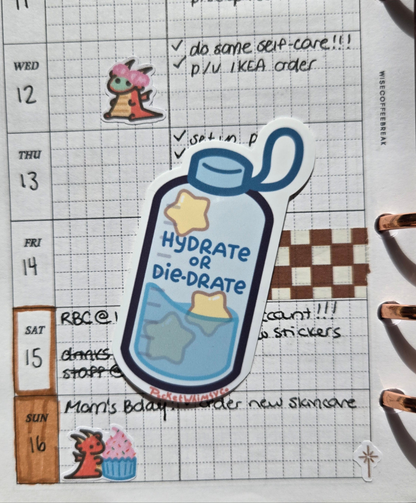 11
WED
12
✓ do some self-care!!!
✓ p/u IKEA order
THU
13
✓ set in
✓
FRI
14
HyDRATe
OR
Die-DRATE
SAT
15
RBC@
count!!!
stickers
drinks
staff @
SUN
16
Mom's Bday
order new skincare
WISECOFFEEBREAK